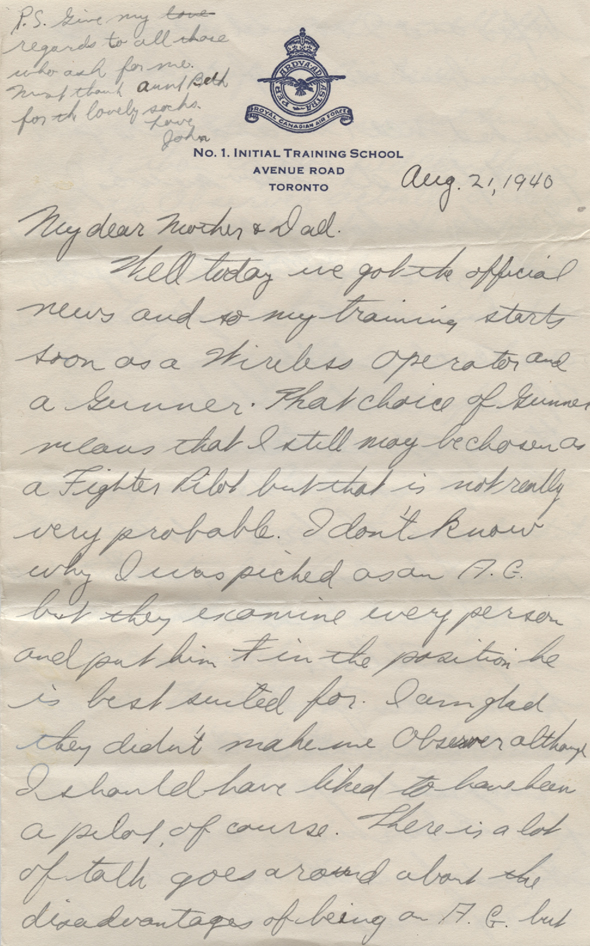 P.S. Give my love
regards to all those
who ask for me.
Must thank aunt Beth
for th lovely socks.
Love
John
PER ARDUA AD ASTRA
ROYAL CANADIAN AIR FORCE
No. 1. INITIAL TRAINING SCHOOL
AVENUE ROAD
TORONTO
Aug. 21, 1940
My dear Mother & Dad.
Well today we got the official
news and so my training starts
soon as a Wireless Operator and
a Gunner. That choice of Gunner
means that I still may be chosen as
a Fighter Pilot but that is not really
very probable. I don't know
why I was picked as an A. G.
but they examine every person
and put him in the position he
is best suited for. I am glad
they didn't make me Observer although
I should have liked to have been
a pilot, of course. There is a lot
of talk goes around about the
disadvantages of being an A. G. but